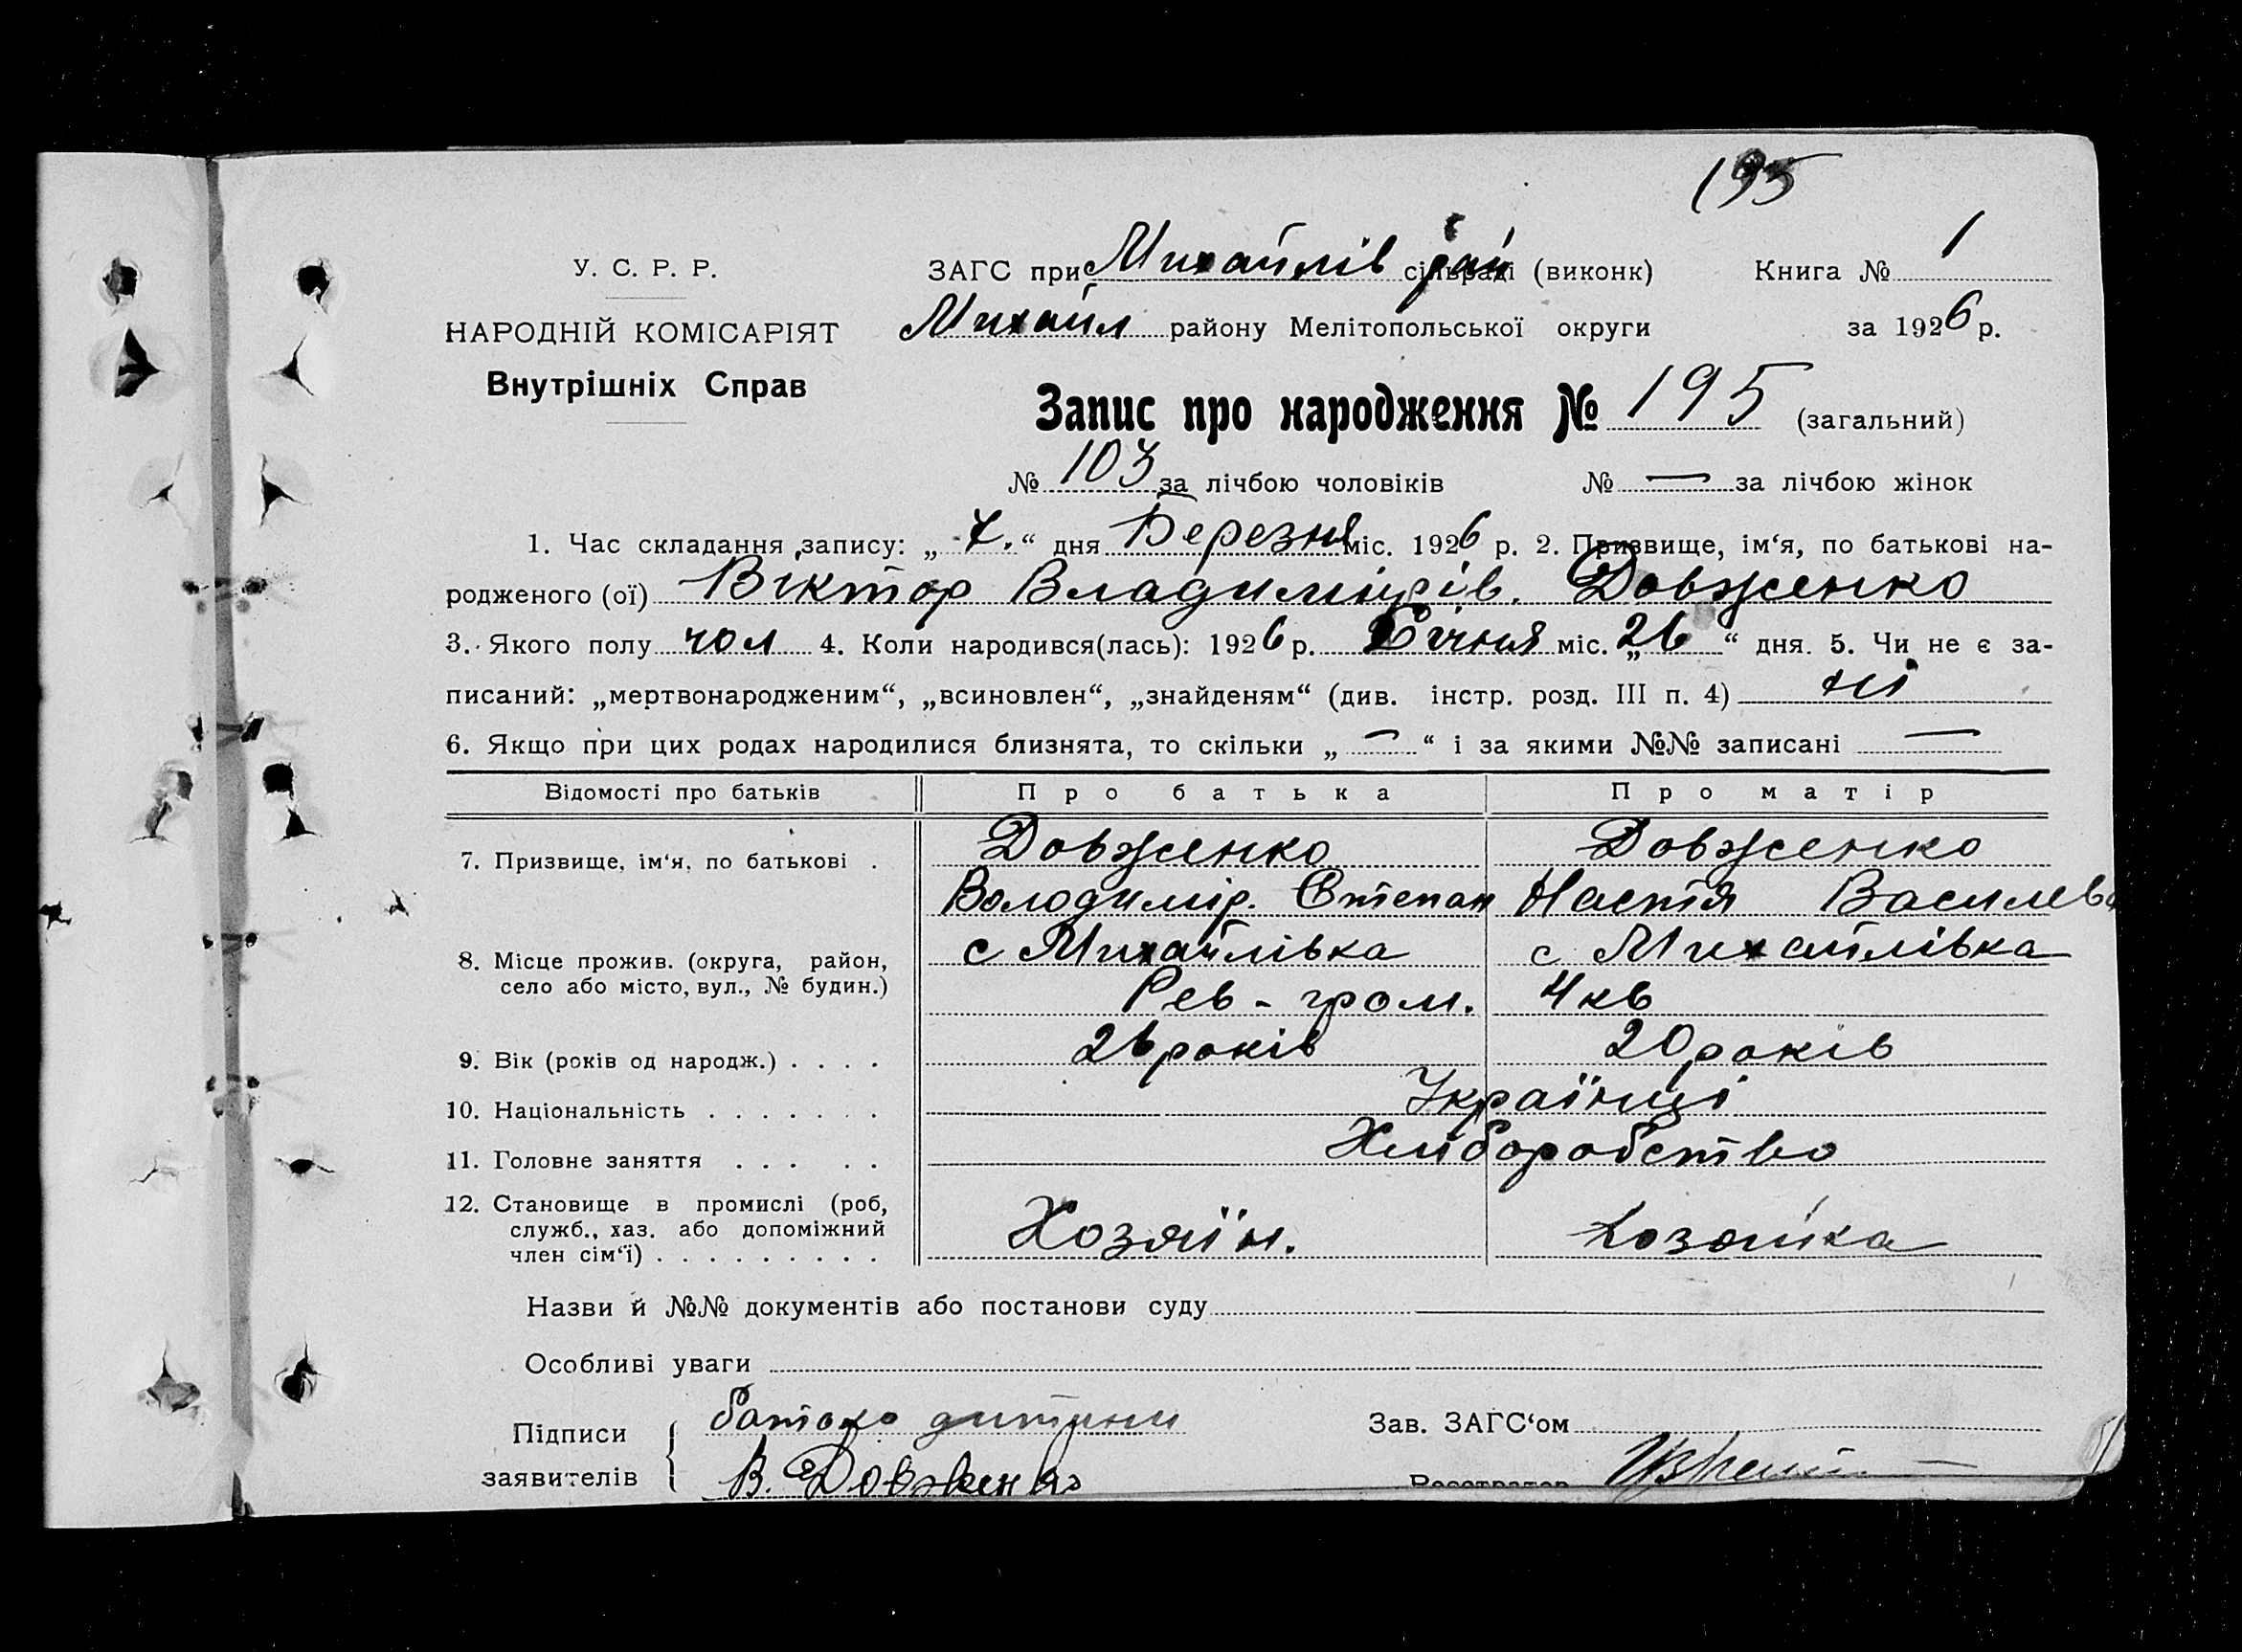 195
У. С. Р. Р.
НАРОДНІЙ КОМІСАРІЯТ
Внутрішніх Справ
ЗАГС при Михайлів рай сільраді (виконк) Книга № 1
Михайл району Мелітопольської округи за 1926 р.
Запис про народження № 195 (загальний)
№ 103 за лічбою чоловіків № — за лічбою жінок
1. Час складання запису: „7.“ дня Березня міс. 1926 р. 2. Призвище, ім‘я, по батькові на-
родженого (ої) Віктор Владиміров. Довженко
3. Якого полу чол 4. Коли народився(лась): 1926 р. Січня міс. „26“ дня. 5. Чи не є за-
писаний: „мертвонародженим“, „всиновлен“, „знайденям“ (див. інстр. розд. III п. 4) ні
6. Якщо при цих родах народилися близнята, то скільки „—“ і за якими №№ записані —
Відомості про батьків Про батька Про матір
7. Призвище, ім‘я, по батькові . Довженко Довженко
Володимір. Степан Настя Василев
8. Місце прожив. (округа, район, село або місто, вул., № будин.) с Михайлівка с Михайлівка
Рев-гром. 4 кв
9. Вік (років од народж.) . . . . 26 років 20 років
10. Національність . . . . . . . Українці
11. Головне заняття . . . . . Хліборобство
12. Становище в промислі (роб, служб., хаз. або допоміжний член сім‘ї) . . . . . . . . . Хозяїн. Хозяйка
Назви й №№ документів або постанови суду
Особливі уваги
Підписи заявителів батько дитини
В. Довженко
Зав. ЗАГС‘ом
Реєстратор